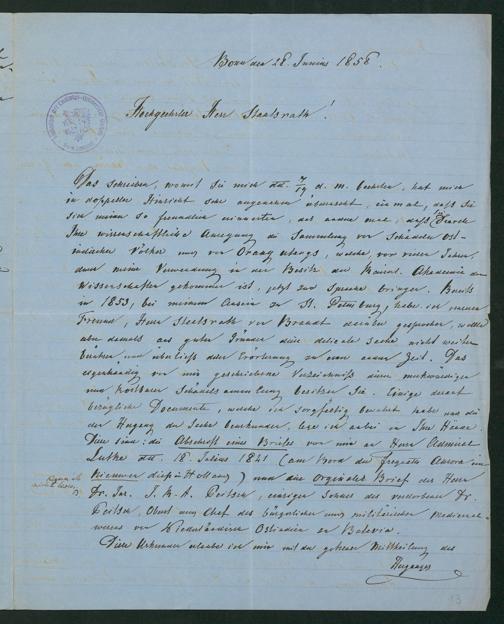 Bonn den 28. Junius 1858.
Hochgeehrter Herr Staatsrath!
Das Schreiben, womit Sie mich dd. 7/19 d. M. beehrten, hat mich
in doppelter Hinsicht sehr angenehm überrascht, einmal, daß Sie
sich meiner so freundlich erinnerten, das andere mal, daß durch
Ihre wissenschaftliche Anregung die Sammlung von Schädeln Ost-
indischer Völker und von Orang Utangs, welche, vor vielen Jahren,
durch meine Verwendung in den Besitz der Kaiserl. Akademie der
Wissenschaften gekommen ist, jetzt zur Sprache bringen. Bereits
in 1853, bei meinem Dasein zu St. Petersburg, habe ich meinem
Freund, Herr Staatsrath von Brandt darüber gesprochen, wollte
aber damals aus guten Gründen diese delicate Sache nicht weiter
berühren, und überließ deren Erörterung zu einer andern Zeit. Das
eigenhändig von mir geschriebene Verzeichniß dieser merkwürdigen
und kostbaren Schädelsammlung besitzen Sie. Einige darauf
bezügliche Documente, welche ich sorgfältig bewahrt habe und die
den Hergang der Sache beurkunden, lege ich anbei in Ihre Hände.
Diese sind: die Abschrift eines Briefes von mir an Herrn Admiral
Lutke dd. 18. Julius 1841 (am Bord der Fregatte Aurora im
Nieuwen diep in Holland) und der originale Brief des Herrn
Dr. Jur. J. H. A.
einziger Sohnes des verstorbenen Dr.
Oberst und Chef des bürgerlichen und militärischen Medicinal-
wesens von Niederländisch Ostindien zu Batavia.
Diese Urkunden erlaube ich mir mit der getreuen Mittheilung des
Herganges
13